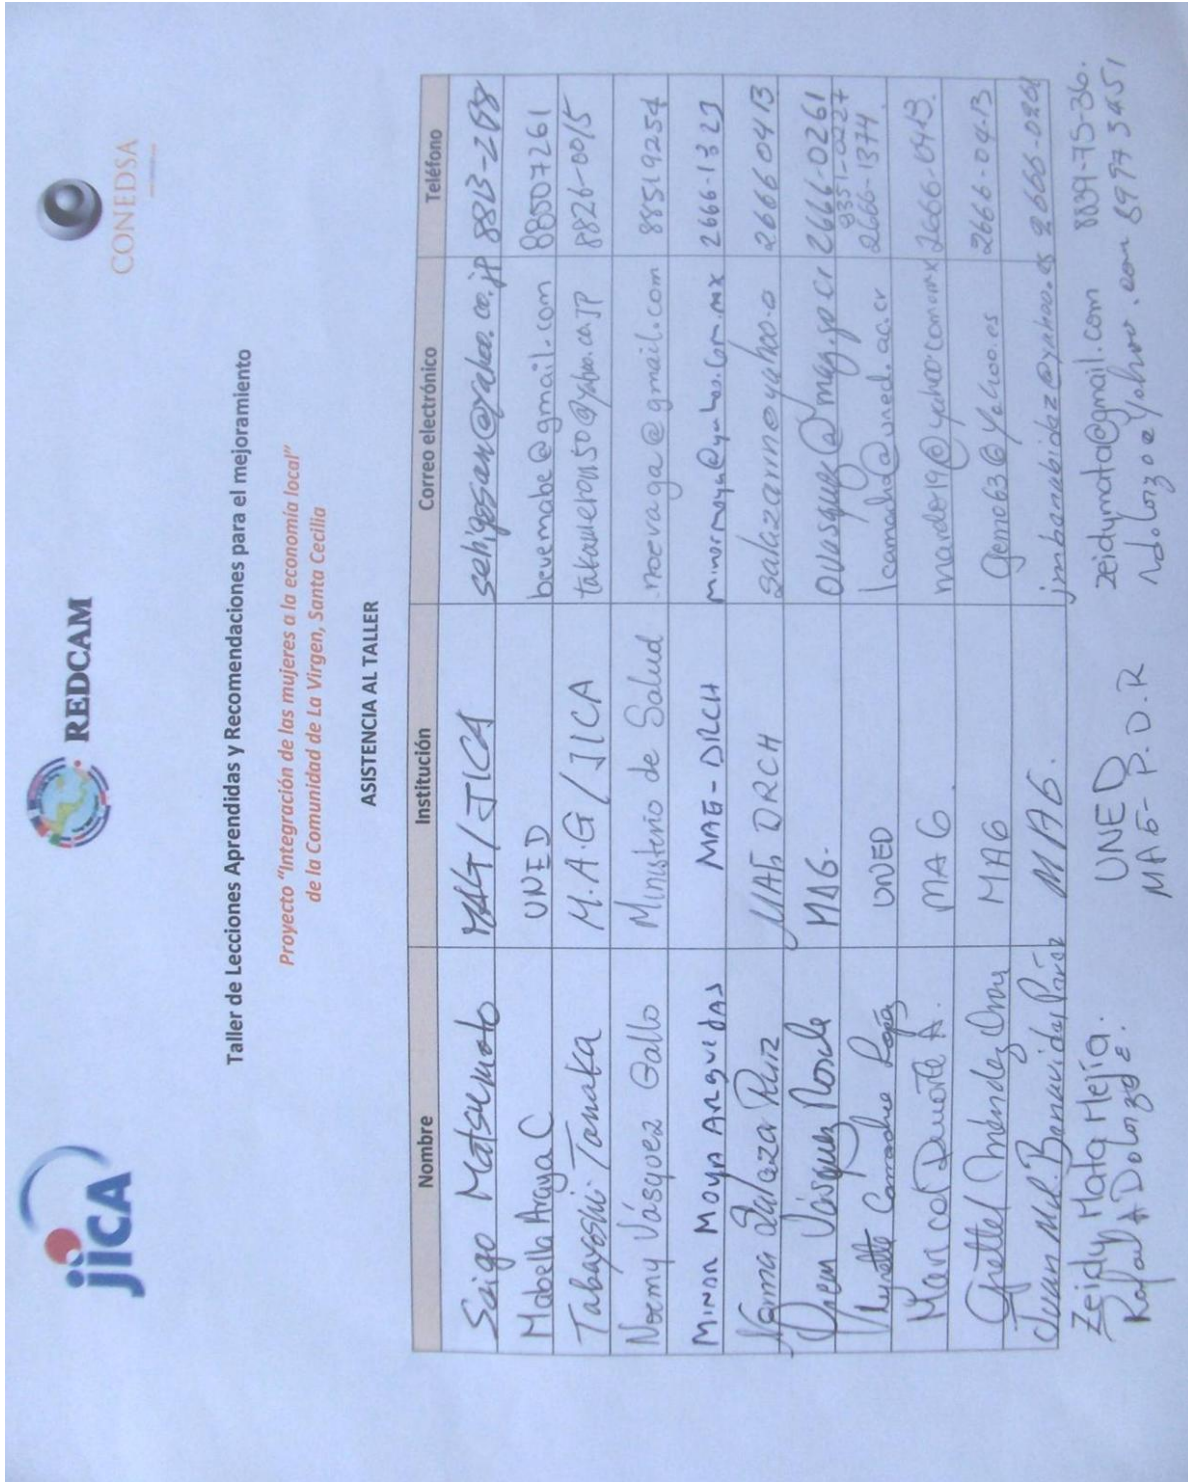 jica
REDCAM
CONEDSA
Taller de Lecciones Aprendidas y Recomendaciones para el mejoramiento
Proyecto "Integración de las mujeres a la economía local"
de la Comunidad de La Virgen, Santa Cecilia
ASISTENCIA AL TALLER
Nombre Institución Correo electrónico Teléfono
Seigo Matsumoto MAG/JICA sehigosan@yahoo.co.jp
Mabella Araya C UNED bevemabe@gmail.com 88507261
Tabayoshi Tanaka M.A.G/JICA 8826-0015
Noemy Vásquez Gallo Ministerio de Salud noevaga@gmail.com 88519254
Minor Moya Anguedas MAG-DRCH 2666-1323
Norma Salazar Ruiz MAG DRCH 2666 0413
Vásquez MAG. ovasquez@mag.go.cr 2666-0261
8351-0227
UNED lcamacho@uned.ac.cr 2666-1374
Duarte A. MAG 2666-0413.
Grettel Méndez MAG geme63@yahoo.es 2666-04-13
Juan Ml. Benavides MAG. jmbenabidez@yahoo.es 2666-0261
Zeidy Mata Mejía. UNED zeidymata@gmail.com 8839-75-36.
Rafael A MAG-P.D.R